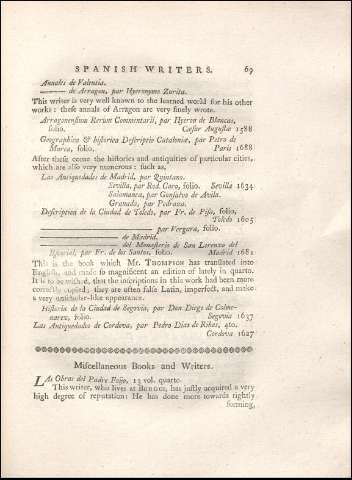 SPANISH WRITERS. 69
Annales de Valentia.
——— de Arragon, par Hyeronymo Zurita.
This writer is very well known to the learned world for his other
works: these annals of Arragon are very finely wrote.
Arragonensium Rerum Commentarii, par Hyero de Blancas,
folio. Cæsar Augustæ 1588
Geographica & historica Descriptio Cataloniæ, par Petro de
Marca, folio. Paris 1688
After these come the histories and antiquities of particular cities,
which are also very numerous: such as,
Las Antiquedades de Madrid, par Quintano.
Sevilla, par Rod. Caro, folio. Sevilla 1634.
Salamanca, par Gonsalvo de Avila.
Granada, par Pedraza.
Descripcion de la Ciudad de Toledo, par Fr. de Pisa, folio,
Toledo 1605
——— par Vergara, folio.
——— de Madrid.
——— del Monasterio de San Lorenzo del
Escurial, par Fr. de los Santos. folio. Madrid 1681
This is the book which Mr. THOMPSON has translated into
English, and made so magnificent an edition of lately in quarto.
It is to be wished, that the inscriptions in this work had been more
correctly copied; they are often false Latin, imperfect, and make
a very unscholar-like appearance.
Historia de la Ciudad de Segovia, par Don Diego de Colme-
narez, folio. Segovia 1637
Las Antiquedades de Cordova, par Pedro Dias de Ribas, 4to.
Cordova 1627
Miscellaneous Books and Writers.
LAS Obras del Padre Feijo, 13 vol. quarto.
This writer, who lives at BURGOS, has justly acquired a very
high degree of reputation: He has done more towards rightly
forming,